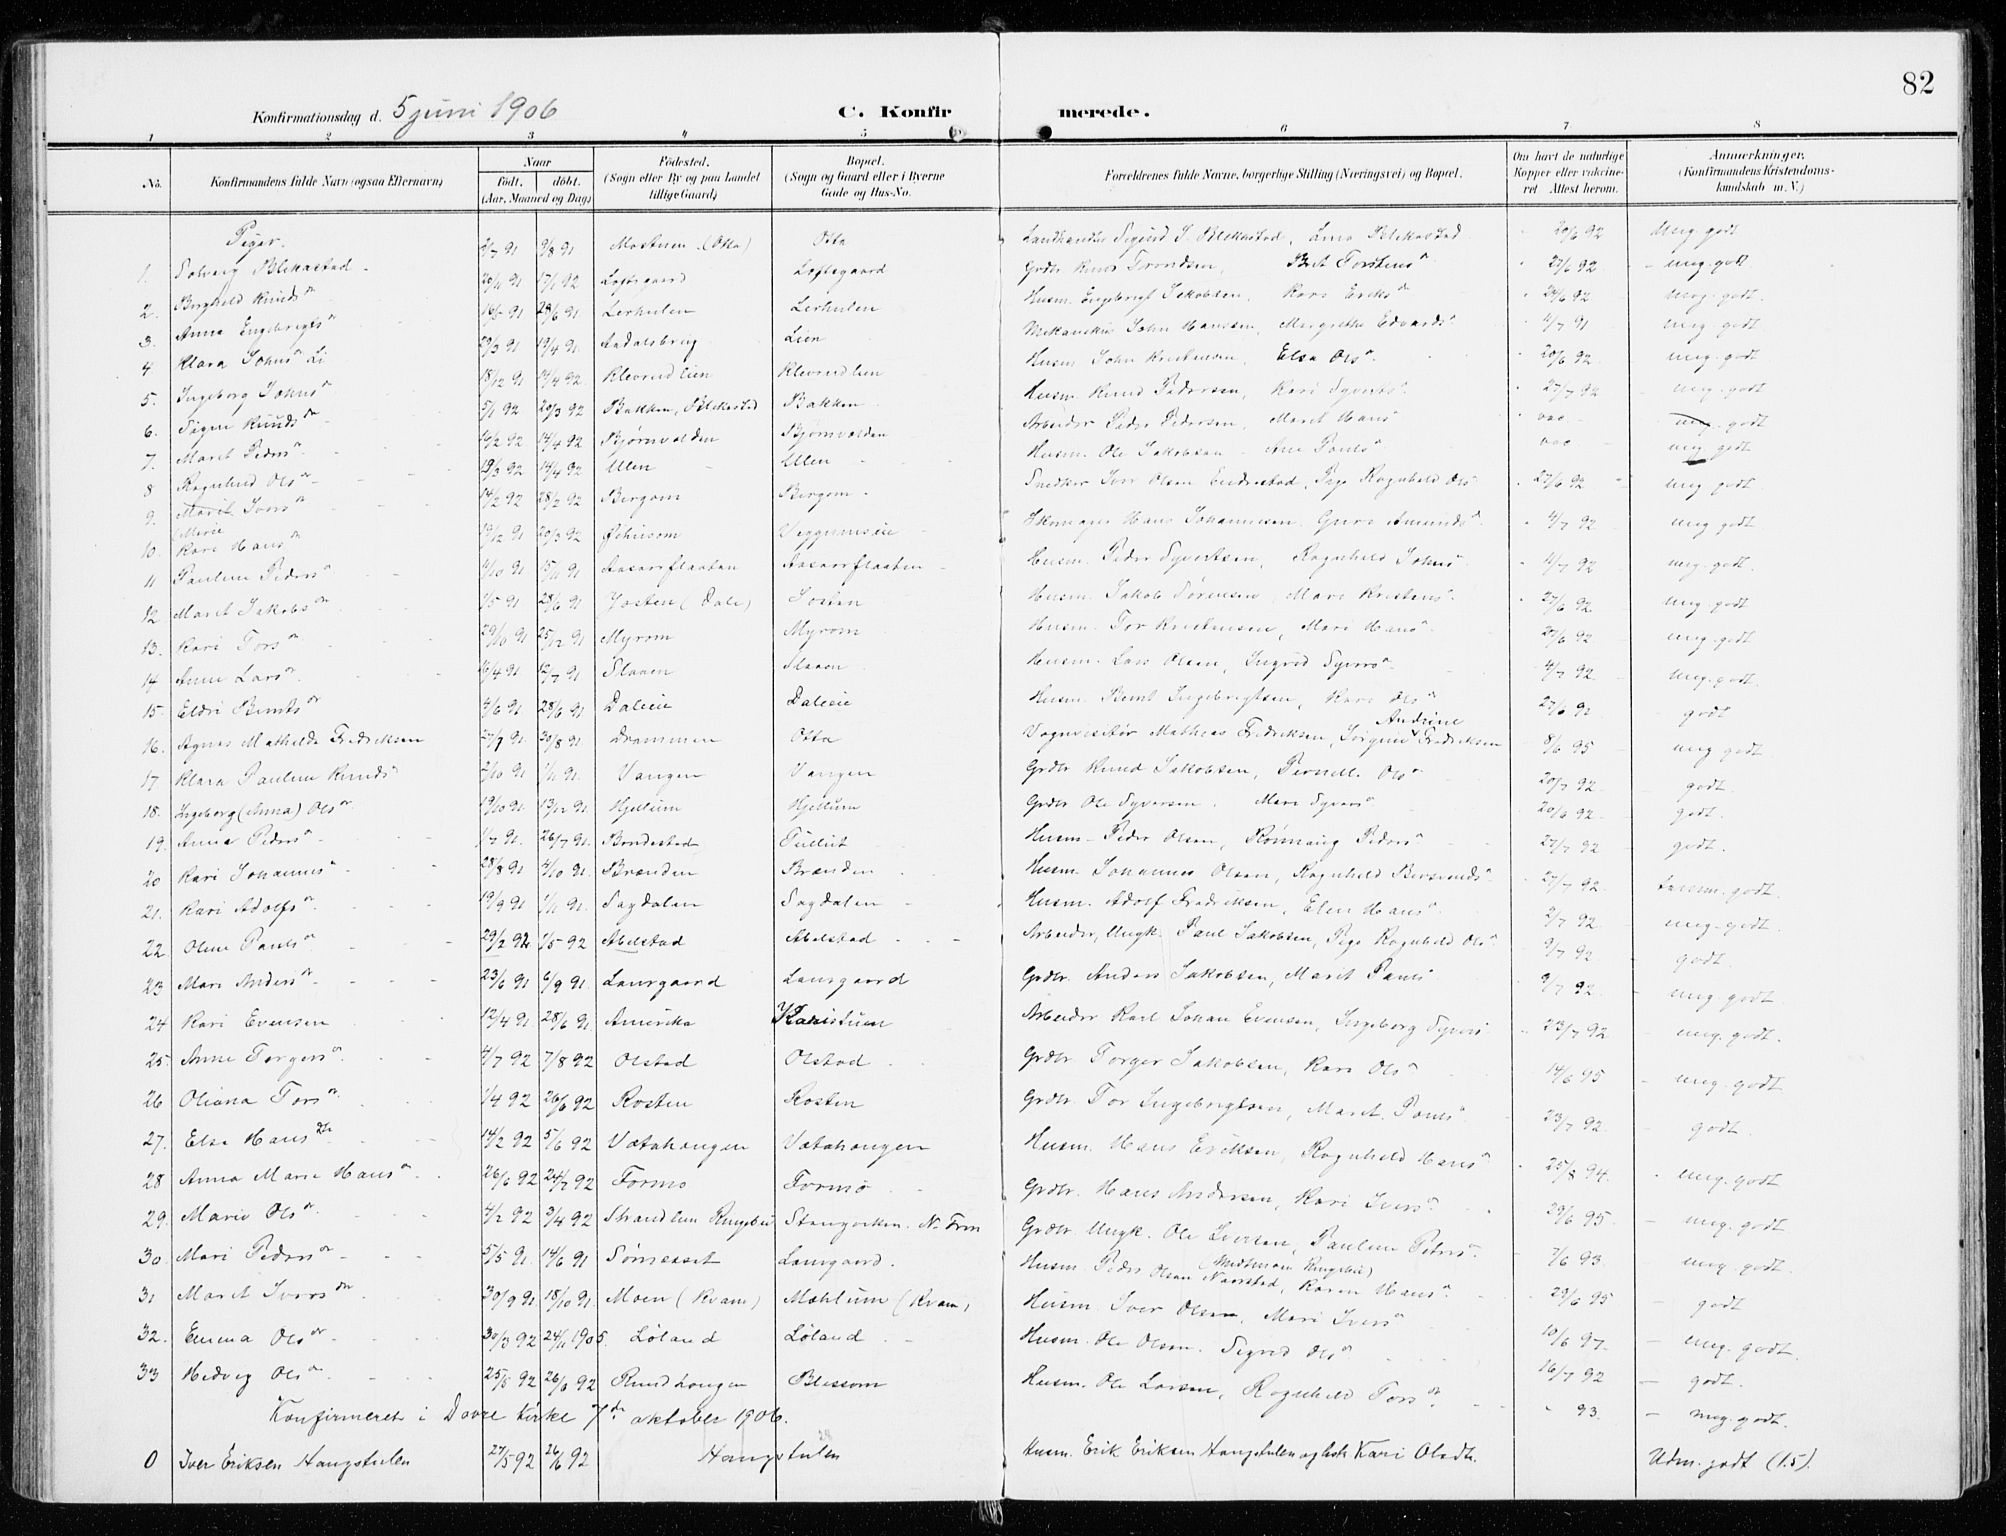 82
Konfirmationsdag d. 5 juni 1906 C. Konfirmerede.
1 2 3 4 5 6 7 8
No. Konfirmandens fulde Navn (ogsaa Efternavn) Naar født, døbt. (Aar, Maaned og Dag) Fødested. (Sogn eller By og paa Landet tillige Gaard) Bopæl. (Sogn og Gaard eller i Byerne Gade og Hus-No. Forældrenes fulde Navne, borgerlige Stilling (Næringsvei) og Bopæl. Om havt de naturlige Kopper eller vakcineret Attest herom. Anmerkninger. (Konfirmandens Kristendomskundskab m. V.)
Piger.
1. Solveig Blekastad 2/7 91 9/8 91 Mostuen (Otta) Otta Landhandler Sigurd S. Blekastad, Lina Blekastad 20/6 92 Meg. godt
2. Borghild Knuds 17/1 92 Loftsgaard Loftsgaard Grdbr. Knud Trondsen, Brit Torstens 27/6 92 meg. godt
3. Anna Engebrigts 28/6 91 Lerhulen Lerhulen Husm. Engebrigt Jakobsen, Kari Eriks 20/6 92 meg. godt
4. Klara Johns Li 29/3 91 19/4 91 Aandalsbrug Lien Mekanikus John Hanssen, Margrethe Edvards 4/7 91 meg. godt
5. Ingeborg Johns 18/12 91 14/4 92 Klevrudlien Klevrudlien Husm. John Kristensen, Elsa Ols 20/6 92 meg. godt
6. Signe Knuds 5/1 92 20/3 92 Bakken, Blekastad Bakken Husm. Knud Pedersen, Kari Syverts 27/7 92 meg. godt
7. Marit Peders 16/2 92 14/4 92 Bjørnvolden Bjørnvolden Arbeider Peder Pedersen, Marit Hans vac meg. godt
8 Ragnhild Ols 19/3 92 14/4 92 Ulen Ulen Husm. Ole Jakobsen, Ane Pauls vac meg. godt
9. Marit Ivers 14/2 92 28/2 92 Bergom Bergom Snedker Iver Olsen Endrestad, Pige Ragnhild Ols 27/6 92 meg godt
Marie
10. Kari Hans 19/12 91 20/3 92 Veggumseie Skomager Hans Johannesen, Guri Amunds 4/7 92 meg godt
11 Pauline Peders 4/10 91 15/11 91 Aasaarflaaten Aasaarflaaten Husm. Peder Syvertsen, Ragnhild Johns 4/7 92 meg. godt
12 Marit Jakobs 1/5 91 28/6 91 Josten (Dale) Josten Husm. Jakob Sørensen, Mari Kristens 27/6 92 meg. godt
13. Kari Tors 29/10 91 25/12 91 Myrom Myrom Husm. Tor Kristensen, Mari Hans 27/6 92 meg. godt
14 Anne Lars 16/4 91 12/7 91 Slaaen Slaaen Husm. Lars Olsen, Ingrid Syvers 4/7 92 meg. godt
15. Eldri Bernts 4/6 91 28/6 91 Daleeie Daleeie Husm. Bernt Ingebrigtsen, Kari Ols 27/6 92 godt
16. Agnes Mathilde Fredriksen 27/7 91 30/8 91 Drammen Otta Vognvisitør Mathias Fredriksen, Jørgine Andrine Fredriksen 8/6 95 meg godt
17 Klara Pauline Knuds 2/10 91 1/11 91 Vangen Vangen Grdbr. Knud Jakobsen, Pernell. Ols 20/7 92 godt
18. Ingeborg (Anna) Ols 19/10 91 13/12 91 Hjellum Hjellum Grdbr Ole Syversen, Mari Syvers 20/6 92 godt.
19. Anna Peders 1/7 91 26/7 91 Bondestad Tullut Husm. Peder Olsen, Rønnaug Peders 27/7 92 godt.
20 Kari Johannes 28/8 91 4/10 91 Brænden Brænden Husm. Johannes Olsen, Ragnhild Bersvends 27/7 92. temm. godt.
21. Kari Adolfs 19/9 91 1/11 91. Sagdalen Sagdalen Husm. Adolf Fredriksen, Elen Hans 2/7 92 meg. godt.
22. Oline Pauls 29/2 92 1/5 92 Abelstad Abelstad Arbeider, Ungk. Paul Jakobsen, Pige Ragnhild Ols 9/7 92 godt.
23 Mari Anders 23/6 91 6/9 91 Laurgaard Laurgaard Grdbr. Anders Jakobsen, Marit Pauls 9/7 92 meg. godt
24 Kari Evensen 12/4 91 28/6 91 Amerika Karistuen Arbeider Karl Johan Evensen, Ingeborg Syvers 23/7 92 meg. godt.
25. Anne Torgers 4/7 92 7/8 92 Olstad Olstad Grdbr. Torger Jakobsen, Kari Ols 14/6 95 meg. godt
26 Oliana Tors 1/4 92 26/6 92 Rosten Rosten Grdbr. Tor Ingebrigtsen, Marit Pauls 23/7 92. godt.
27. Else Hans 14/2 92 5/6 92 Vætahaugen Vætahaugen Husm. Hans Eriksen, Ragnhild Hans 25/8 94. meg. godt
28 Anna Marie Hans 26/6 92 24/7 92 Formo Formo Grdbr. Hans Andersen, Kari Ivers 29/6 95. meg. godt
29. Marie Ols 4/2 92 3/4 92 Strandlien Ringebu N. Fron Grdbr. Ungk. Ole Iversen, Pauline Peters 7/6 93 meg. godt.
30 Mari Peders 5/5 91 14/6 91 Sømesset Laurgaard. Husm. Peder Olsen Naarstad, Karen Hans 29/6 95 godt
31 Marit Ivers 30/9 91 18/10 91 Moen (Kvam) Mæhlum (Kvam) Husm. Iver Olsen, Mari Ivers 10/6 97. meg. godt.
32. Emma Ols 30/3 92 24/11 1905. Løland Løland Husm. Ole Olsen, Sigrid Ols 16/7 92 godt.
33 Hedvig Ols 25/5 92 26/6 92 Rundhaugen Blessom Husm. Ole Larsen, Ragnhild Tors 93. meg. godt.
Konfirmeret i Dovre kirke 7de oktober 1906.
0 Iver Eriksen Haugstulen 27/5 92 26/6 92 Haugstulen Husm. Erik Eriksen Haugstulen og hstr Kari Olsdtr. Udm. godt (1.5).